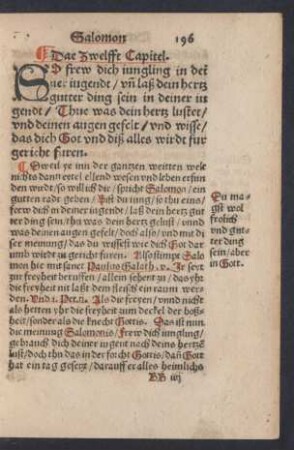 Salomon 196
Das Zwelfft Capitel.
SO frew dich iungling in dei
ner iugendt / vn̄ laß dein hertz
gutter ding sein in deiner iu
gendt / Thue was dein hertz lustet /
vnd deinen augen gefelt / vnd wisse /
das dich Got vnd diß alles wirdt fur
gericht furen.
Dweil yn der gantzen weitten welt
nichts dann eittel ellend wesen vnd leben erfun
den wirdt / so will ich die / spricht Salomon / ein
gutten radt geben / Bist du iung / so thu eins /
frew dich in deiner iugendt / laß dein hertz gut
ter ding sein / thu was dein hertz gelust / vnnd
was deinen augen gefelt / doch also / vnd mit di
ser meinung / das du wissest wie dich Got dar
umb wirdt zu gericht furen. Also stimpt Salo
mon hie mit sanct Paulus Galath. v. Ir seyt
zur freyheit beruffen / allein sehent zu / das yhr
die freyheit nit laßt dem fleisch ein raum wers
den. Vnd i. Pet. ij. Als die freyen / vnnd nicht
als hetten yhr die freyheit zum deckel der boß
heit / sonder als die knecht Gottis. Das ist nun
die meinung Salomonis / Frew dich iungling /
gebrauch dich deiner iugent nach deins hertzē
lust / doch thu das in der forcht Gottis / dañ Gott
hat ein tag gesetzt / darauff er alles heimlichs
BB iij
Du ma
gst wol
frolich
vnd gut
ter ding
sein / aber
in Gott.